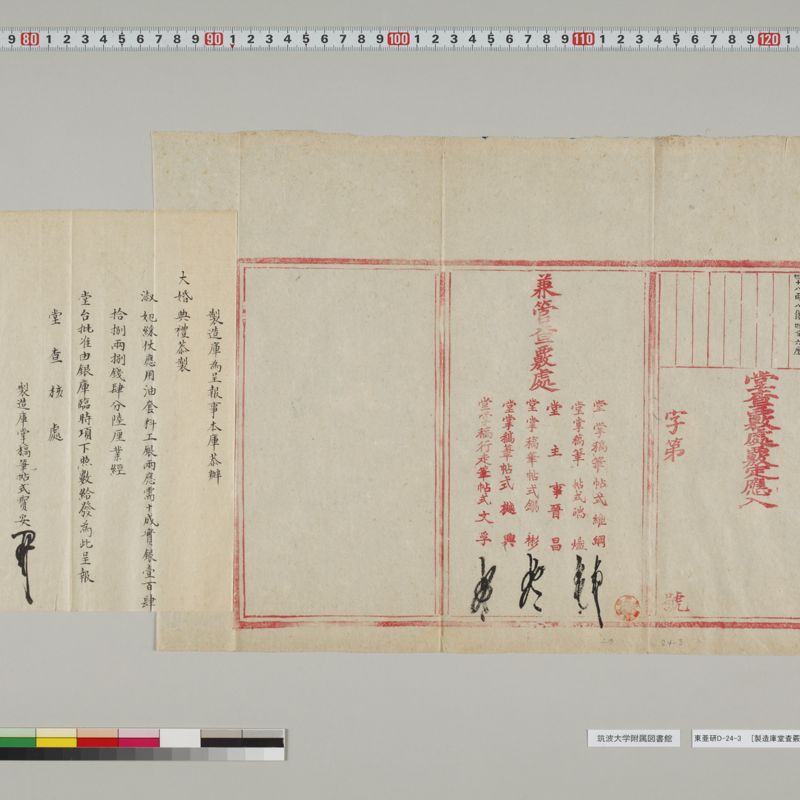 9 80 1 2 3 4 5 6 7 8 9 90 1 2 3 4 5 6 7 8 9 100 1 2 3 4 5 6 7 8 9 110 1 2 3 4 5 6 7 8 9 120 1
堂查覈處覈定應入
字第
號
兼管查覈處
堂掌稿筆帖式維綱
堂掌稿筆帖式瑞
堂主事晉昌
堂掌稿筆帖式錫彬
堂掌稿筆帖式
堂掌稿行走筆帖式文孚
製造庫為呈報事本庫恭辦
大婚典禮恭製
淑妃綵仗應用油畫料工銀兩應需十成實銀壹百肆
拾捌兩捌錢肆分陸厘業經
堂台批准由銀庫臨時項下照數給發為此呈報
堂查核處
製造庫掌稿筆帖式賀安
24-3
筑波大学附属図書館
東亜研D-24-3 [製造庫堂査覈